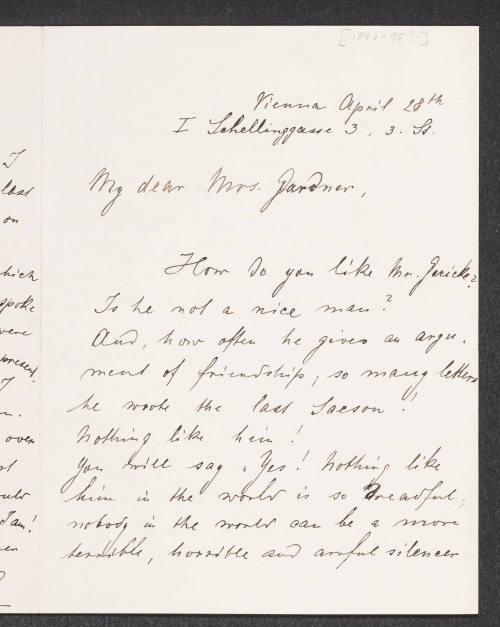 [1890-95?]
Vienna April 28th
I Schellinggasse 3, 3. St.
My dear Mrs. Gardner,
How do you like Mr. Gericke?
Is he not a nice man?
And, how often he gives an argu-
ment of friendship; so many letters
he wrote the last Saeson!
Nothing like him!
You will say "Yes! Nothing like
him in the world is so dreadful;
nobody in the world can be a more
terrible, horrible and awful silencer
I
last
on
hich
spoke
were
present.
I
over
ould